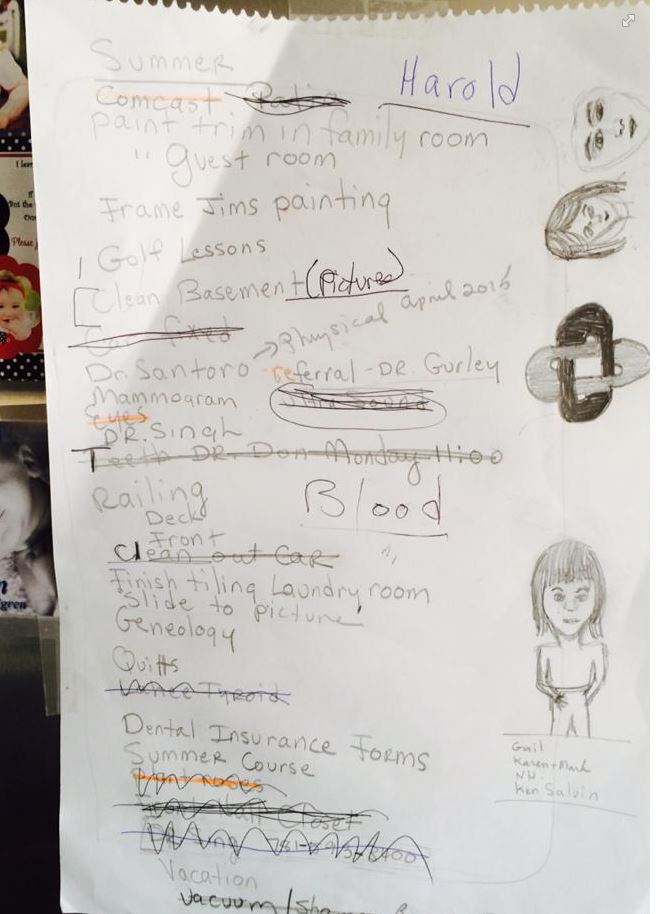 Summer
Harold
Comcast
paint trim in family room
" guest room
Frame Jims painting
1 Golf Lessons
Clean Basement (Pictures)
Car fixed
Physical April 2016
Dr. Santoro referral - DR. Gurley
Mammogram
Ultra Sound
eyes
DR. Singh
Teeth DR. Don Monday 11:00
Railing
Blood
Deck
Front
Clean out Car
Finish tiling Laundry room
Slide to picture
Geneology
Quilts
Dental Insurance Forms
Summer Course
Closet
Vacation
Vacuum /
Gail
Karen + Mark
NH.
Ken Salvin